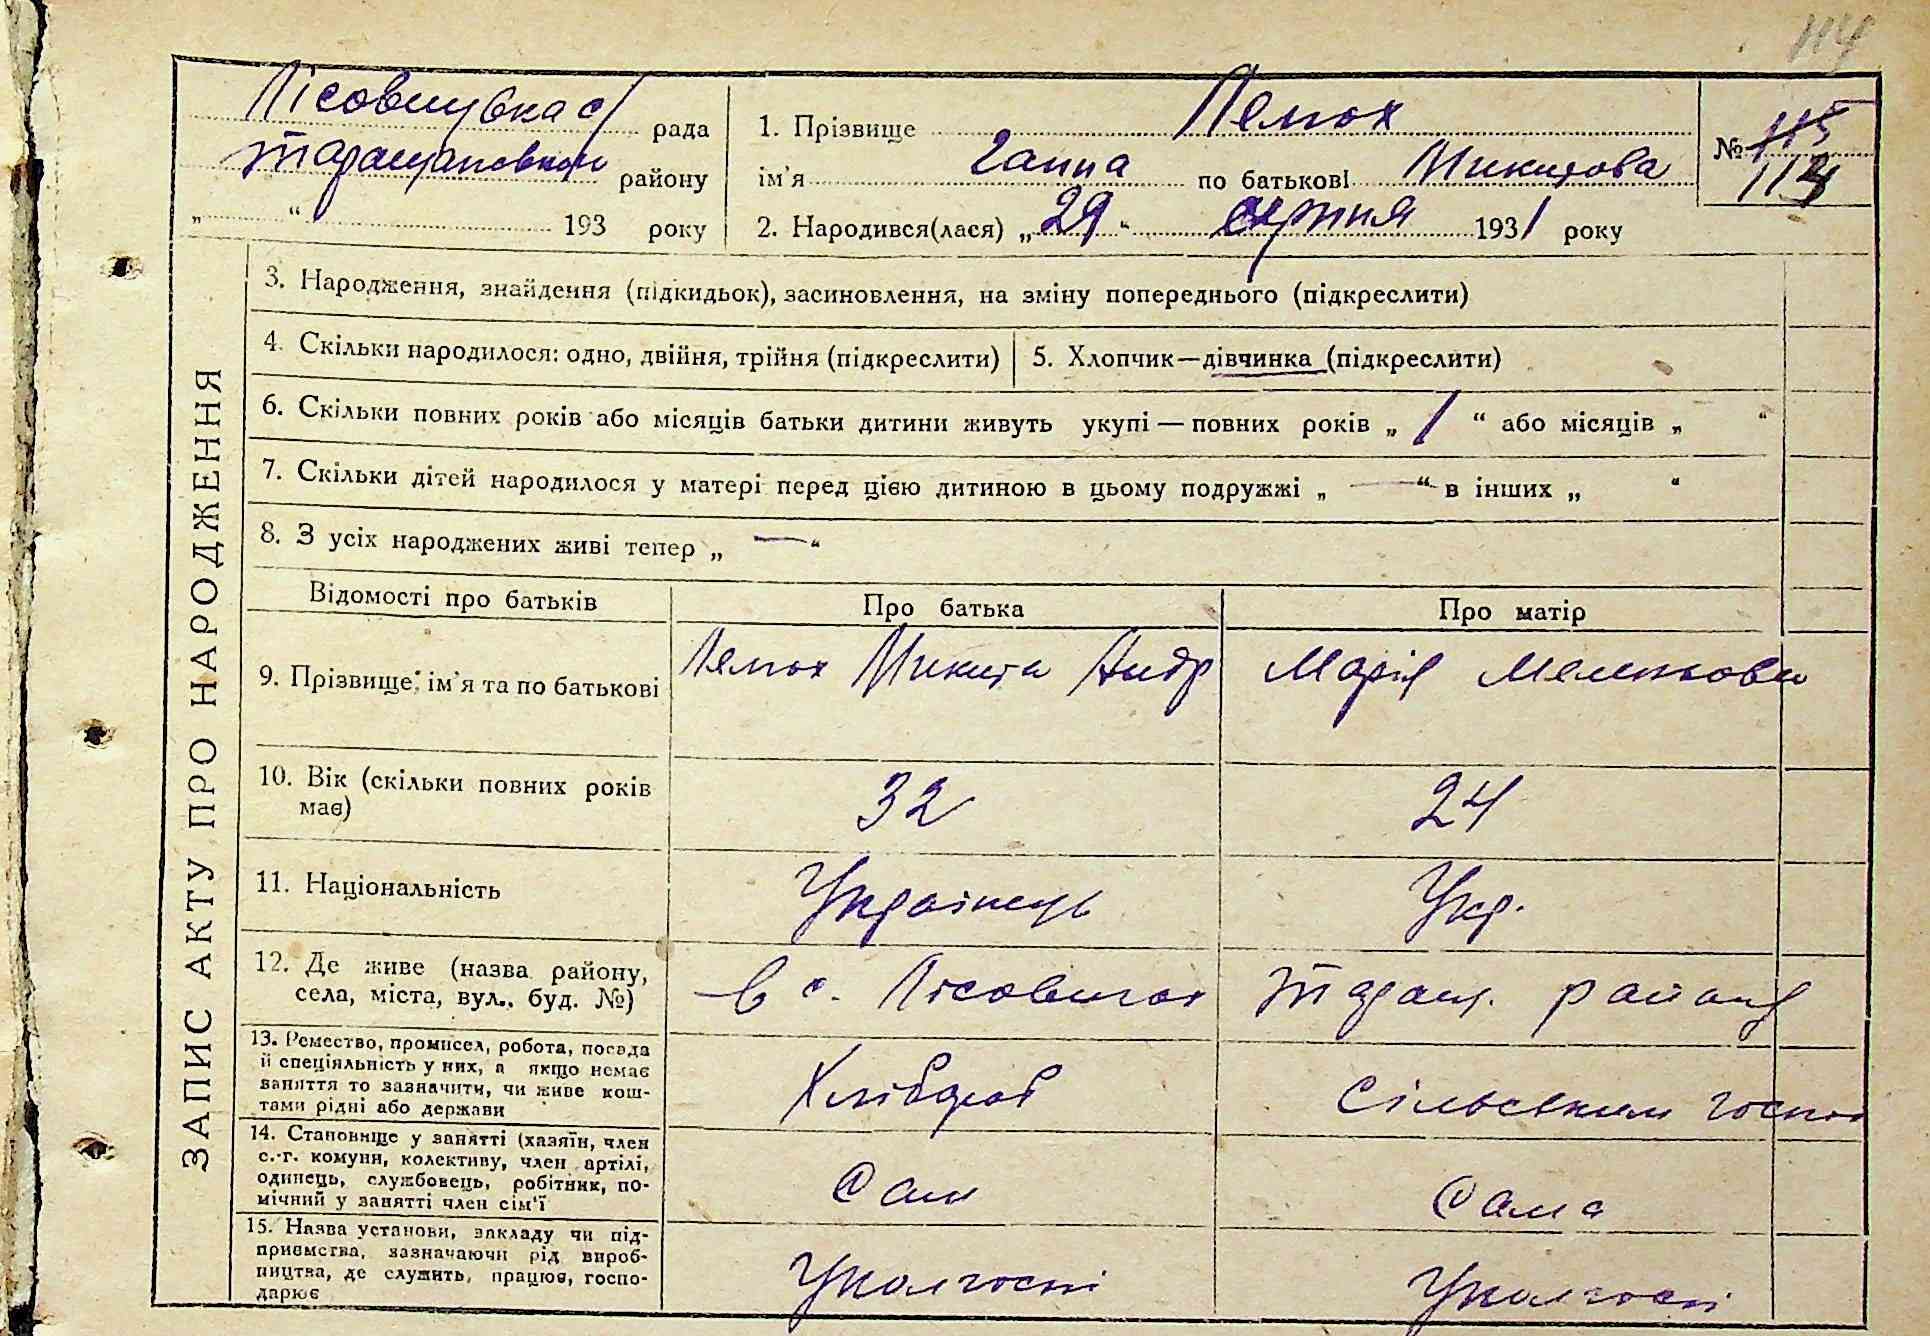 114
Лісовицька с/ рада
Таращанського району
„ “ 193 року
1. Прізвище Лемох
ім'я Ганна по батькові Микитова
2. Народився(лася) „29“ серпня 1931 року
№ 115
114
ЗАПИС АКТУ ПРО НАРОДЖЕННЯ
3. Народження, знайдення (підкидьок), засиновлення, на зміну попереднього (підкреслити)
4. Скільки народилося: одно, двійня, трійня (підкреслити) 5. Хлопчик—дівчинка (підкреслити)
6. Скільки повних років або місяців батьки дитини живуть укупі — повних років „ 1 “ або місяців „ “
7. Скільки дітей народилося у матері перед цією дитиною в цьому подружжі „ — “ в інших „ “
8. З усіх народжених живі тепер „ — “
Відомості про батьків Про батька Про матір
9. Прізвище, ім'я та по батькові Лемох Микита Андр Марія
10. Вік (скільки повних років 32 24
має)
11. Національність Українець Укр.
12. Де живе (назва району, в с. Лісовичах Таращ. району
села, міста, вул., буд. №)
13. Ремество, промисел, робота, посада
й спеціяльність у них, а якщо немає
заняття то зазначити, чи живе кош-
тами рідні або держави
Хлібороб Сільським госпо
14. Становище у занятті (хазяїн, член
с.-г. комуни, колективу, член артілі,
одинець, службовець, робітник, по-
мічний у занятті член сім'ї
Сам Сама
15. Назва установи, закладу чи під-
приємства, зазначаючи рід вироб-
ництва, де служить, працює, госпо-
дарює
У колгоспі У колгоспі